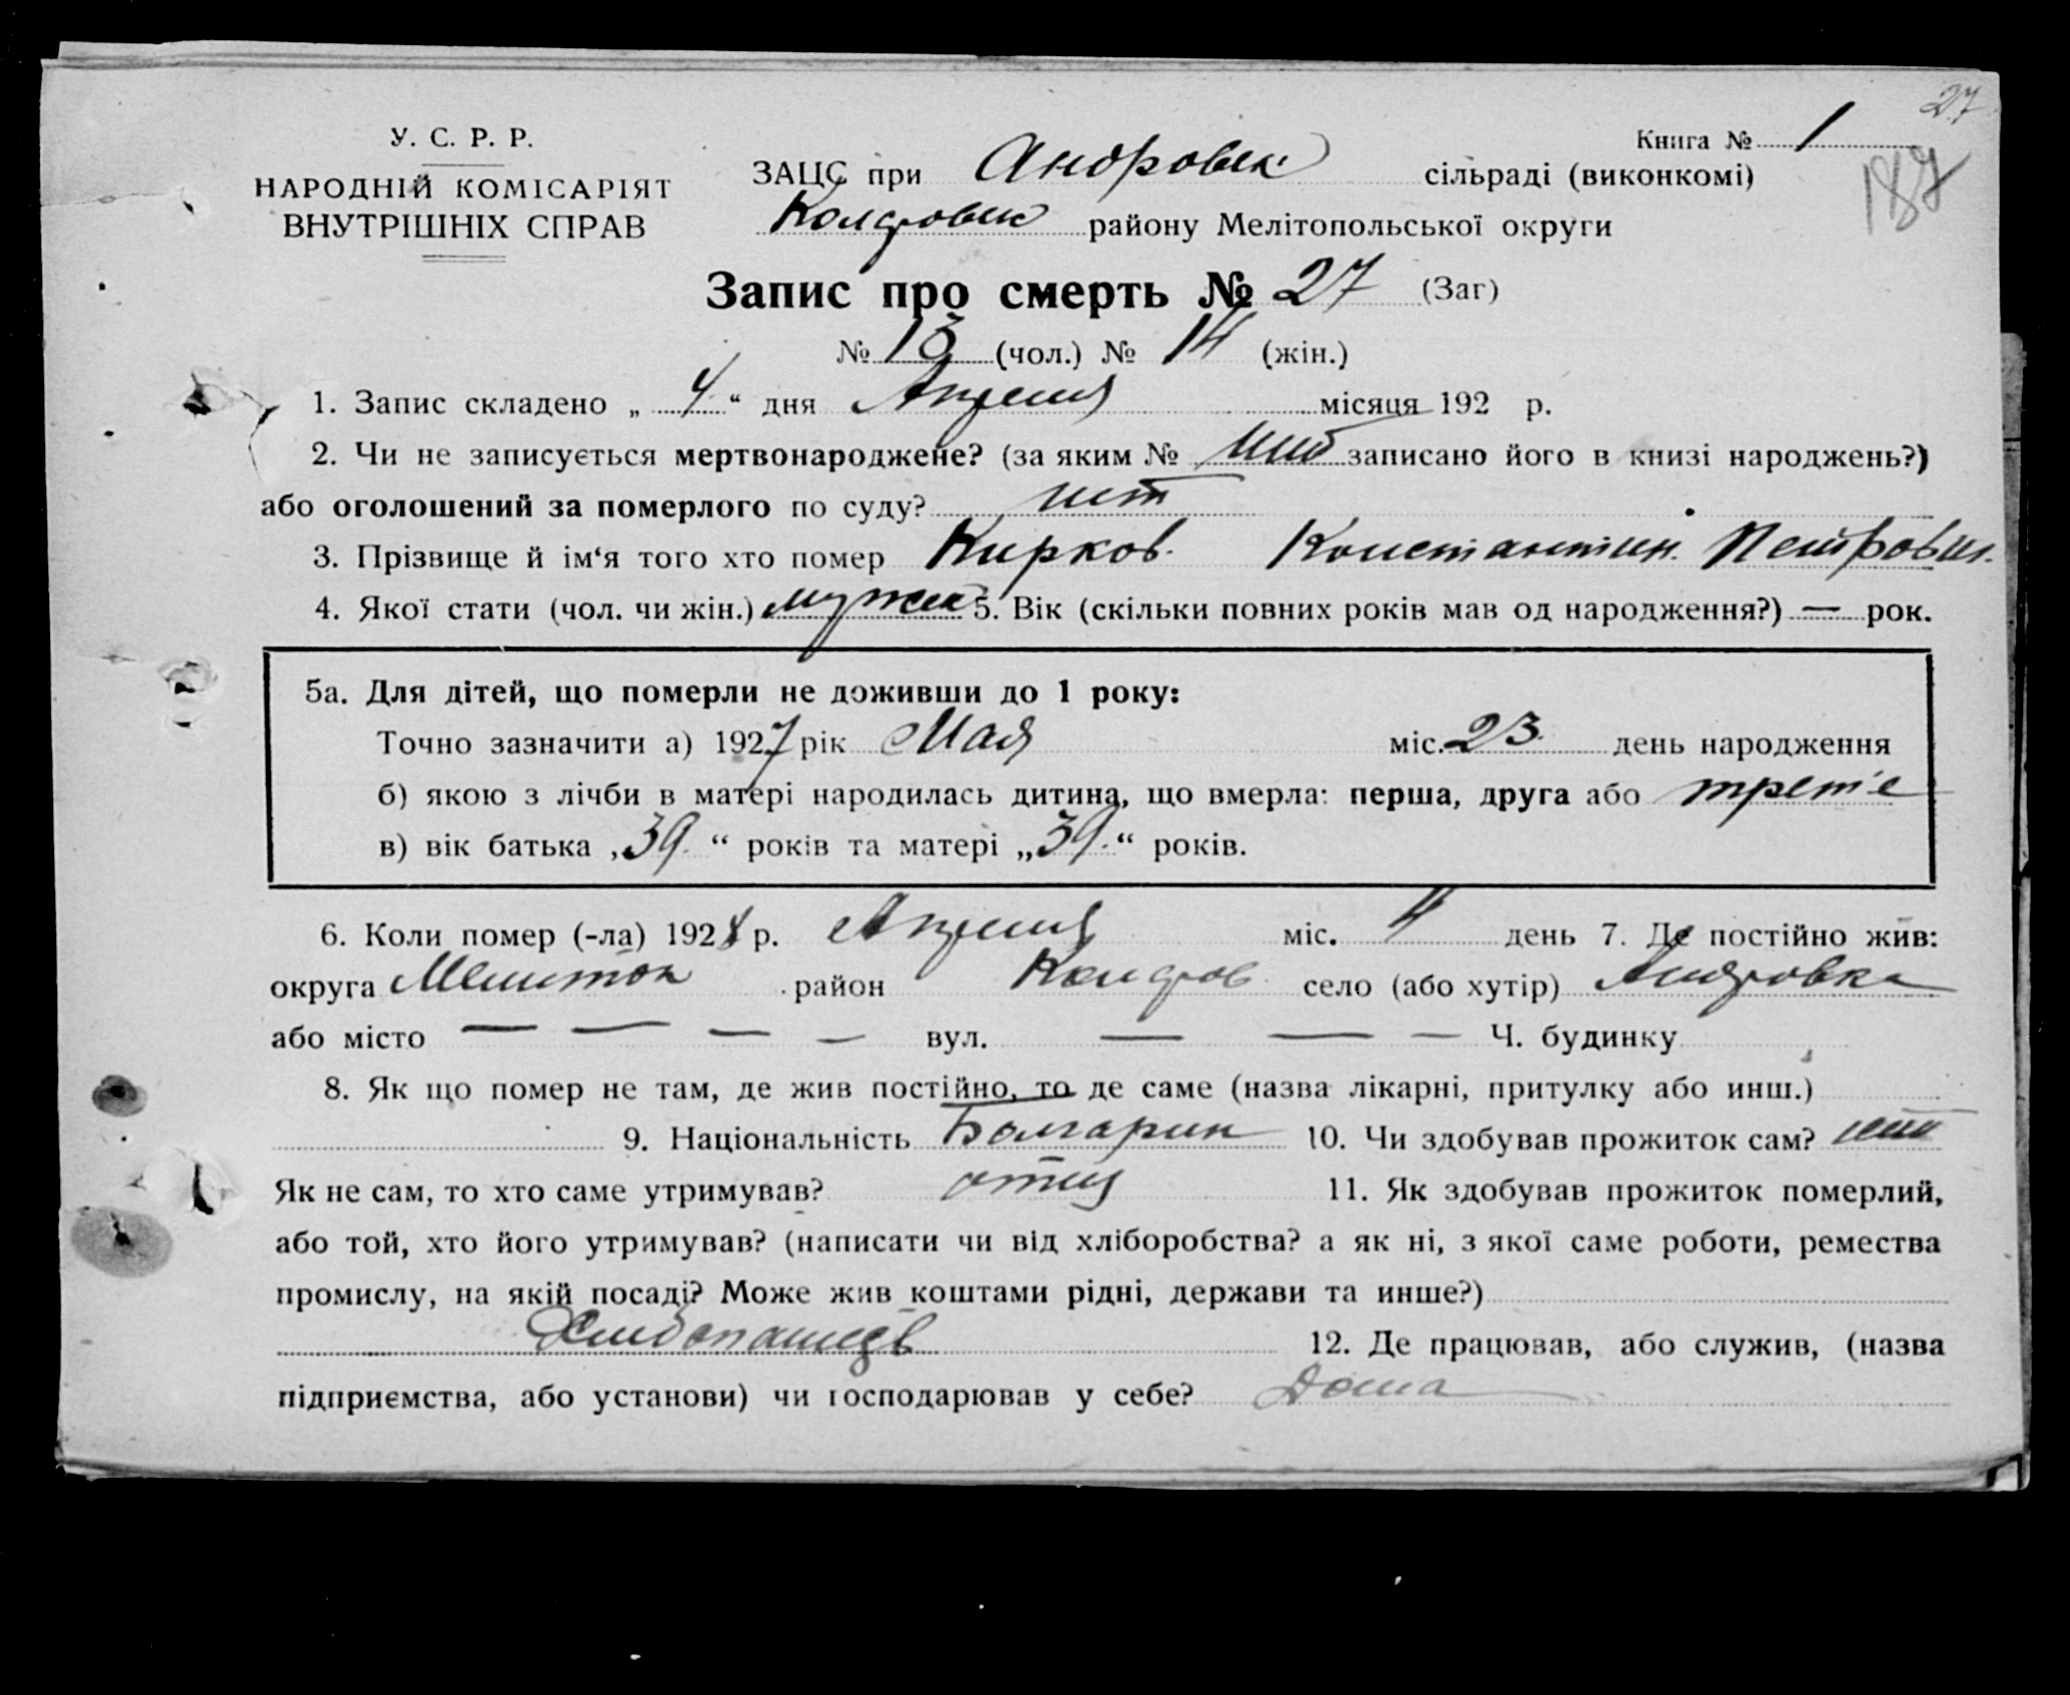 27
У. С. Р. Р.
НАРОДНІЙ КОМІСАРІЯТ
ВНУТРІШНІХ СПРАВ
Книга № 1
187
ЗАЦС при Андровск сільраді (виконкомі)
району Мелітопольської округи
Запис про смерть № 27 (Заг)
№ 13 (чол.) № 14 (жін.)
1. Запис складено „ 4 “ дня Апреля місяця 192 р.
2. Чи не записується мертвонароджене? (за яким № нет записано його в книзі народжень?)
або оголошений за померлого по суду? нет
3. Прізвище й ім‘я того хто помер Кирков Константин. Петрович.
4. Якої стати (чол. чи жін.) мужск 5. Вік (скільки повних років мав од народження?) — рок.
5а. Для дітей, що померли не доживши до 1 року:
Точно зазначити а) 1927 рік Мая міс. 23 день народження
б) якою з лічби в матері народилась дитина, що вмерла: перша, друга або
в) вік батька „39“ років та матері „39“ років.
6. Коли помер (-ла) 1928 р. Апреля міс. 4 день 7. Де постійно жив:
округа Мелитоп район село (або хутір) Андровка
або місто — — — — вул. — — — Ч. будинку
8. Як що помер не там, де жив постійно, то де саме (назва лікарні, притулку або инш.)
9. Національність Болгарин 10. Чи здобував прожиток сам? нет
Як не сам, то хто саме утримував? отец 11. Як здобував прожиток померлий,
або той, хто його утримував? (написати чи від хліборобства? а як ні, з якої саме роботи, ремества
промислу, на якій посаді? Може жив коштами рідні, держави та инше?)
Хлебопашец 12. Де працював, або служив, (назва
підприємства, або установи) чи господарював у себе? Дома